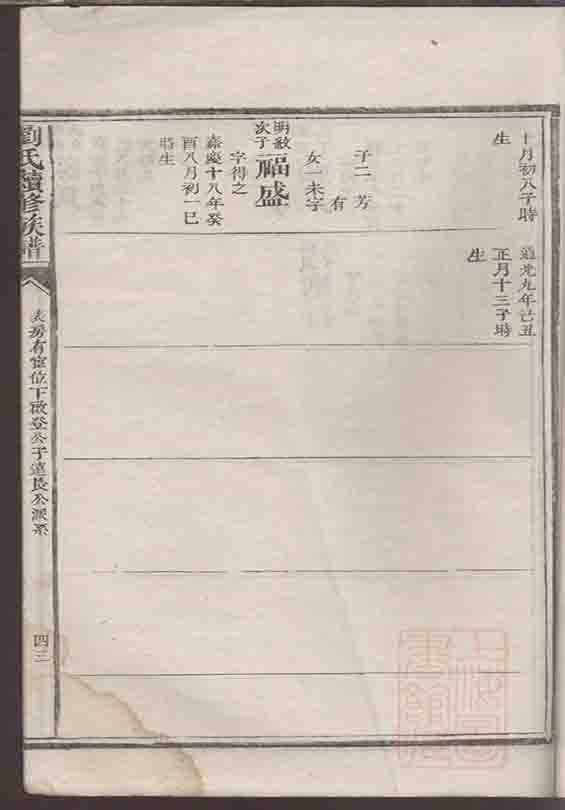 十月初八子時
生
子二 芳
有
女一未字
明數
次子
福盛
字得之
嘉慶十八年癸
酉八月初一巳
時生
道光九年己丑
正月十三子時
生
劉氏續修族譜
房有富位下啟登公子遠長公派系
四三